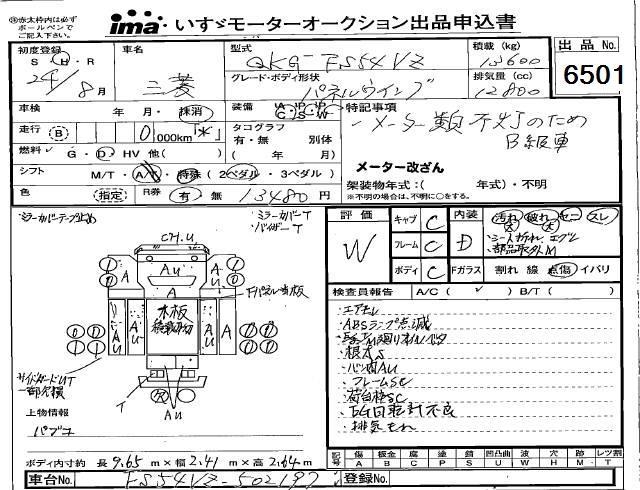 ※赤太枠内は必ずボールペンでご記入下さい。
ima いすゞモーターオークション出品申込書
初度登録 S・H・R 24年 8月
車名 三菱
型式 QKG-FS54VZ
グレード・ボディ形状 パネルウイング
積載(kg) 13600
排気量(cc) 12800
出品No. 6501
車検 年・月・抹消
装備
特記事項
・メーター類不灯のため
B級車
メーター改ざん
走行 B 0,000km *
タコグラフ 有・無 別体 ( 年 月)
燃料 G・D・HV 他( )
架装物年式:( 年式)・不明
※不明の場合は、不明に○をする。
シフト M/T・A/T・特殊(2ペダル・3ペダル)
色 (指定)
R券 有 無 13480円
ミラーカバーテープ止め
ミラーカバーT
バイザーT
CH.U
Au
A
A
A
Fパネル当板
木板
A
Au
Au
A
サイドガードUT
一部欠損
イ
Au
上物情報
パブコ
ボディ内寸 約 長 9.65 m×幅 2.41 m×高 2.64 m
評価 W
キャブ C
フレーム C
ボディ C
内装 D
汚れ 破れ コゲ スレ
・シート折れ、エグレ
・部品取外M
Fガラス 割れ 線 点傷 イバリ
検査員報告 A/C( ✓ ) B/T( )
・エアモレ
・ABSランプ点滅
・根太S
・バン内AU
・フレームSC
・荷台枠SC
・EG回転計不良
・排気もれ
記号 傷 A 板金 B 腐 C 塗 P 錆 S 凹凸曲 U 波 W 穴 H 跡 M レツ割 T
車台No. FS54VZ-502197
登録No.